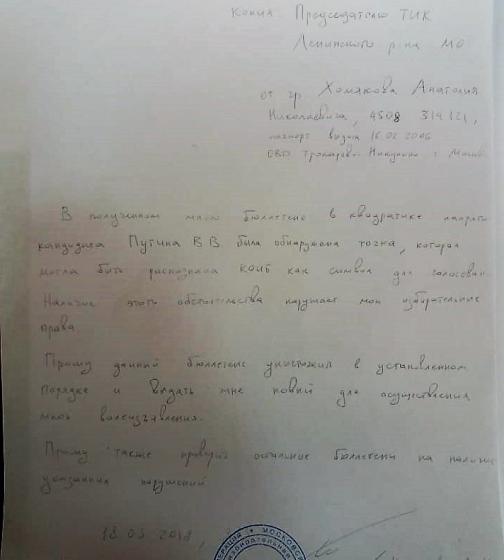 Копия: Председателю ТИК
Ленинского р-на МО
от гр. Хомякова Анатолия
Николаевича, 4508
паспорт выдан 16.02.2006
ОВД Тропарево-Никулино г.
В полученном мною бюллетене в квадратике напротив
кандидата Путина В.В. была обнаружена точка, которая
могла быть распознана КОИБ как символ для голосован
Наличие этого обстоятельства нарушает мои избирательные
права.
Прошу данный бюллетень уничтожить в установленном
порядке и выдать мне новый для осуществления
моего волеизъявления.
Прошу также проверить остальные бюллетени на наличие
указанных нарушений
18.03.2018,
МОСКОВСК